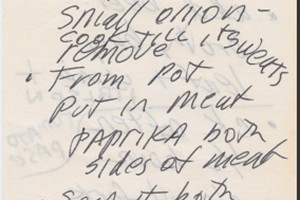 small onion -
cook till it sweats
remove
• From pot
Put in meat
PAPRIKA both
sides of meat
both